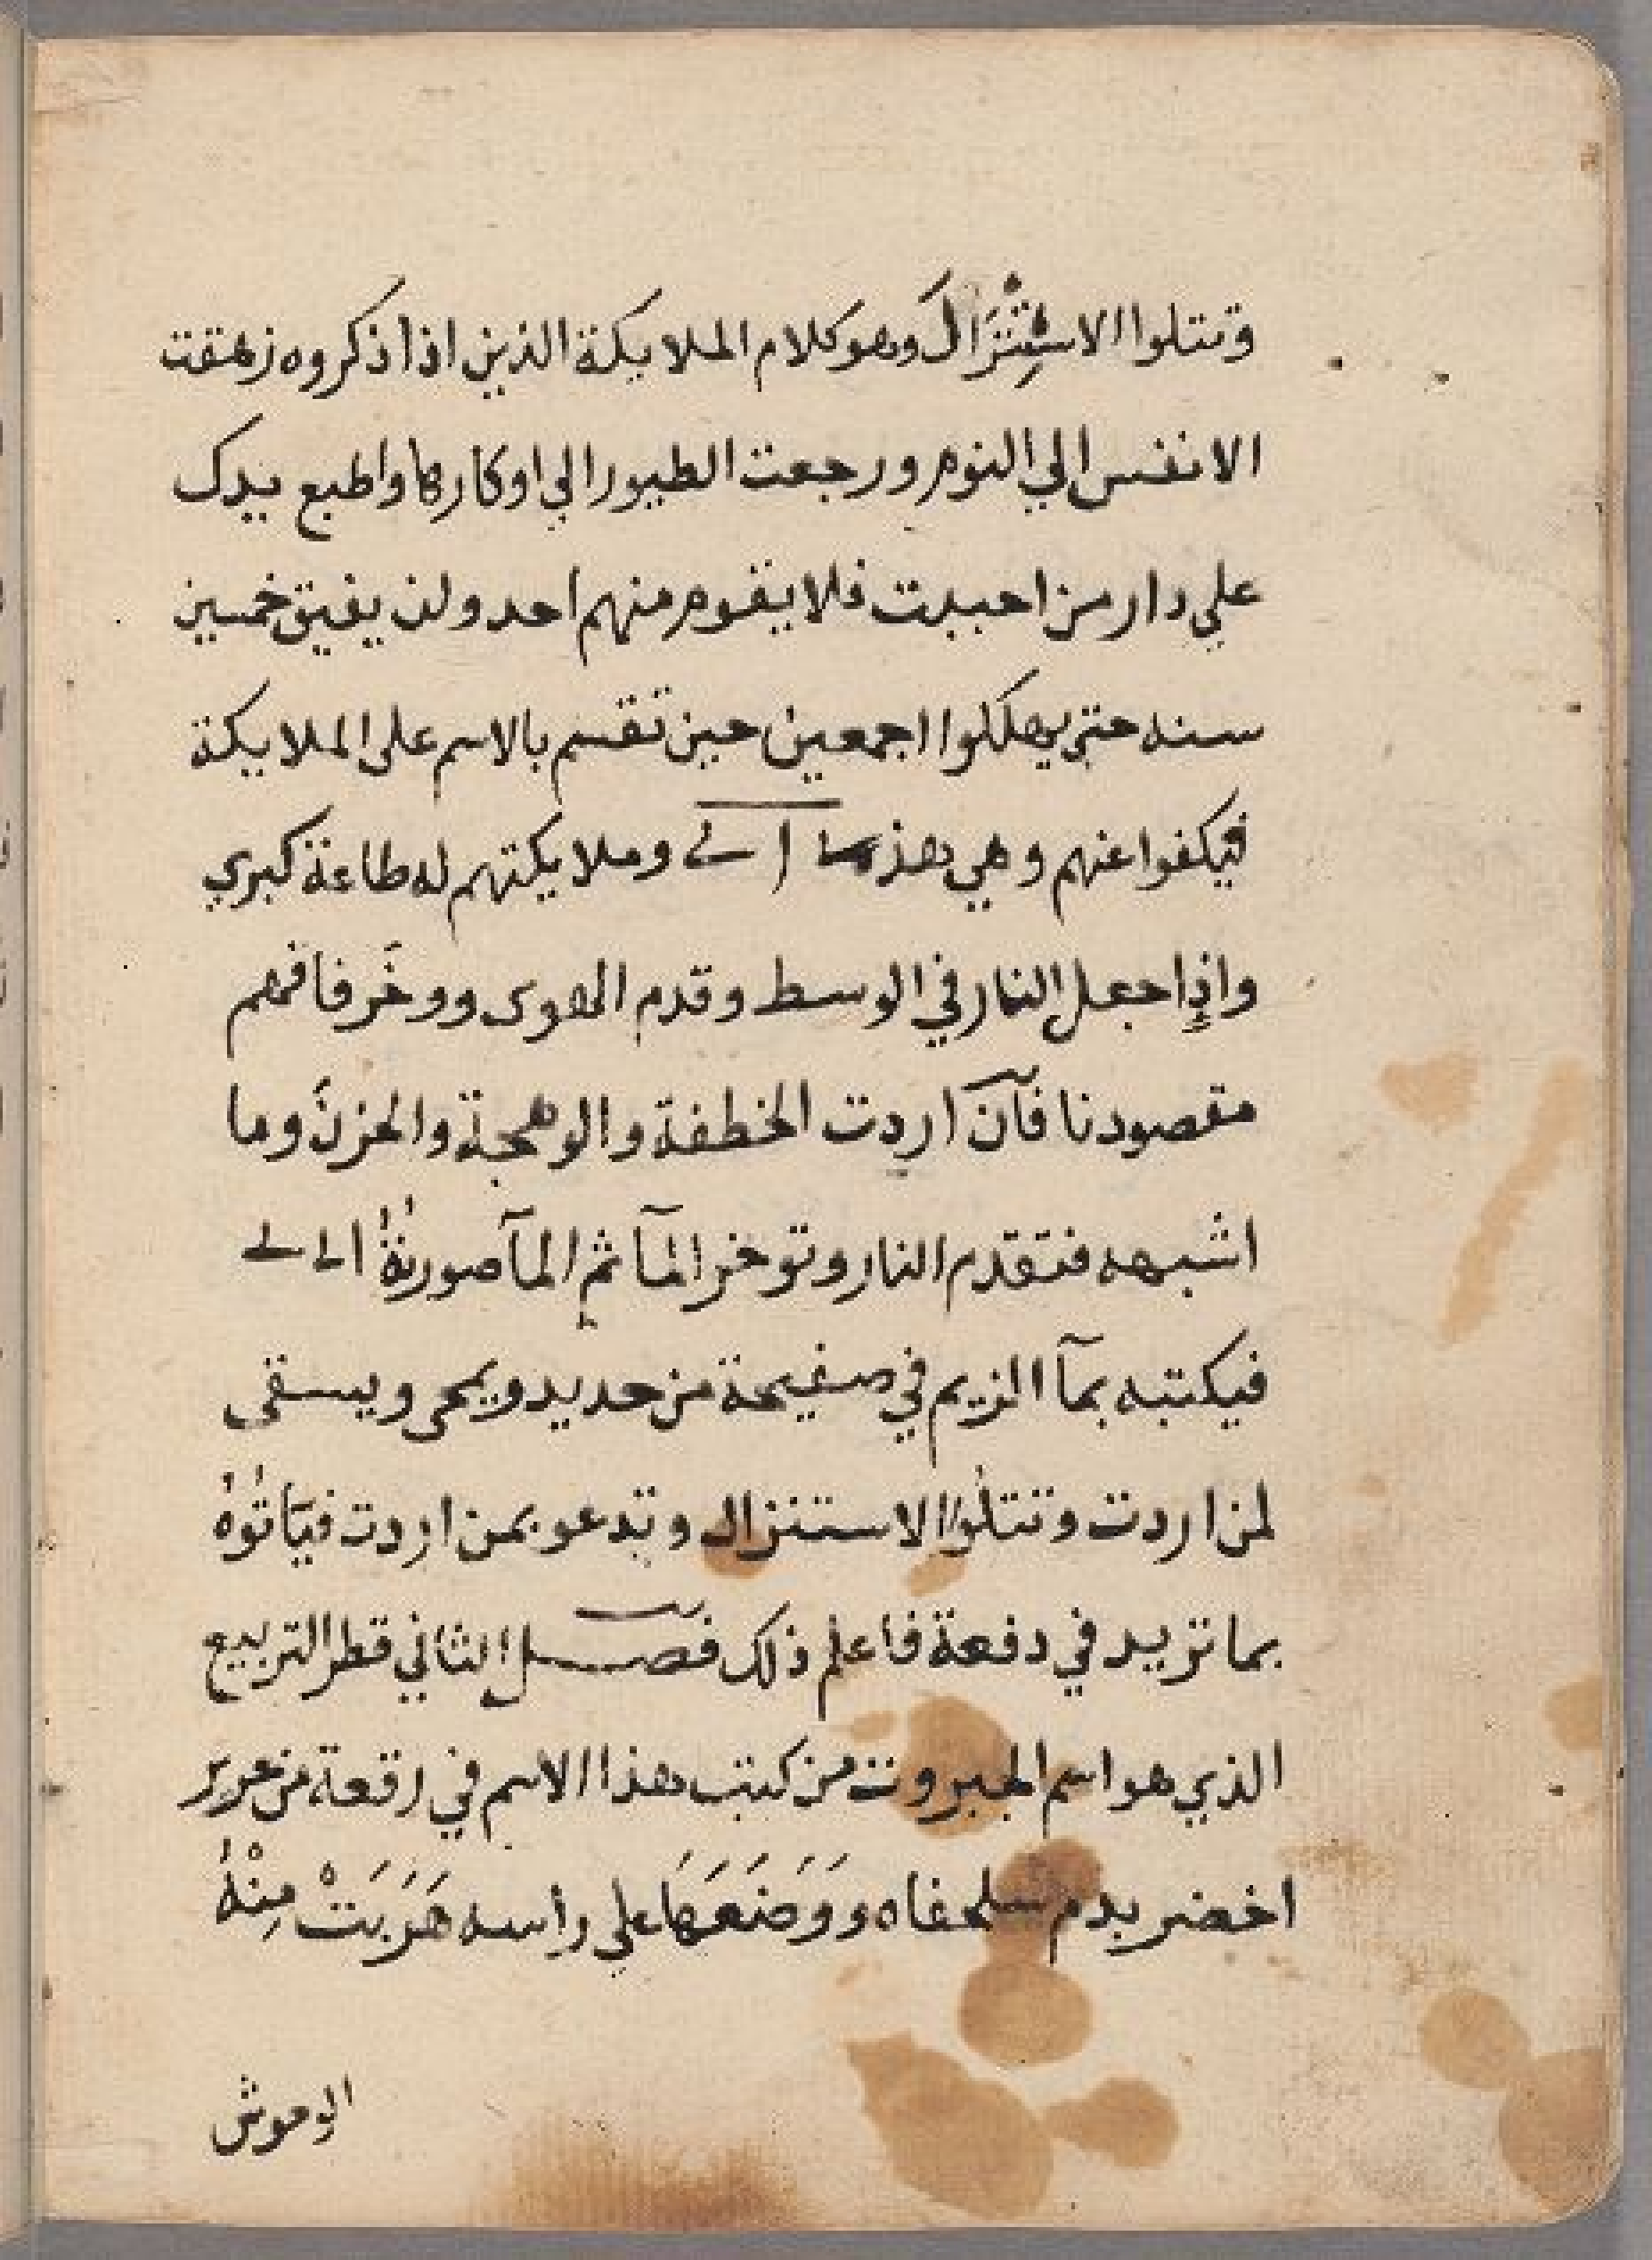 وتتلوا الاسْتِنْزَالَ وهو كلام الملايكة الذين اذا ذكروه زهقت
الانفس الي النوم ورجعت الطيور الي اوكارها واطبع بيدك
علي دار من احببت فلا يقوم منهم احد ولن يفيق خمسين
سنه حتي يهلكوا اجمعين حين تقسم بالاسم علي الملايكة
فيكفوا عنهم وهي هذه وملايكتهم له طاعة كبري
واذا جعل النار في الوسط وقدم الهوي ووخَر فافهم
مقصودنا فآن اردت الخطفة والوهجة والحزنَ وما
اشبهه فتقدم النار وتوخر المآ ثم المآ صورتهُ
فيكتبه بمآ المريم في صفيحة من حديد ويمحي ويسقي
لمن اردت وتتلُوا الاستنزال وتدعو بمن اردت فيَآتُوهُ
بما تريد في دفعة فاعلم ذلك فصل الثاني قطر التربيع
الذي هو اسم الجبروت من كتب هذا الاسم في رقعة من حرير
اخضر بدم سلحفاه ووَضَعَهَا علي راسه هَرَبَتْ مِنْهُ
الوحوش